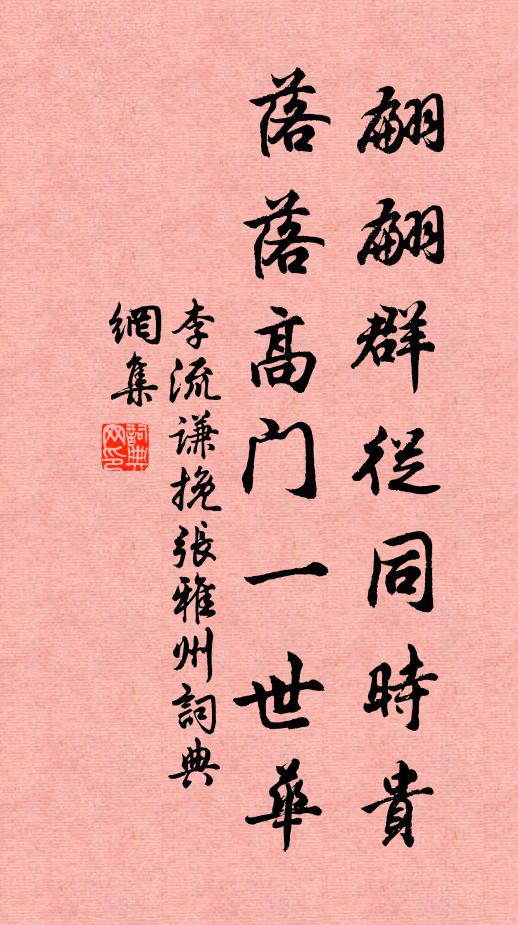 翩翩群從同時貴
落落高門一世華
李流謙挽張雅州詞典
網集
詞典
网印